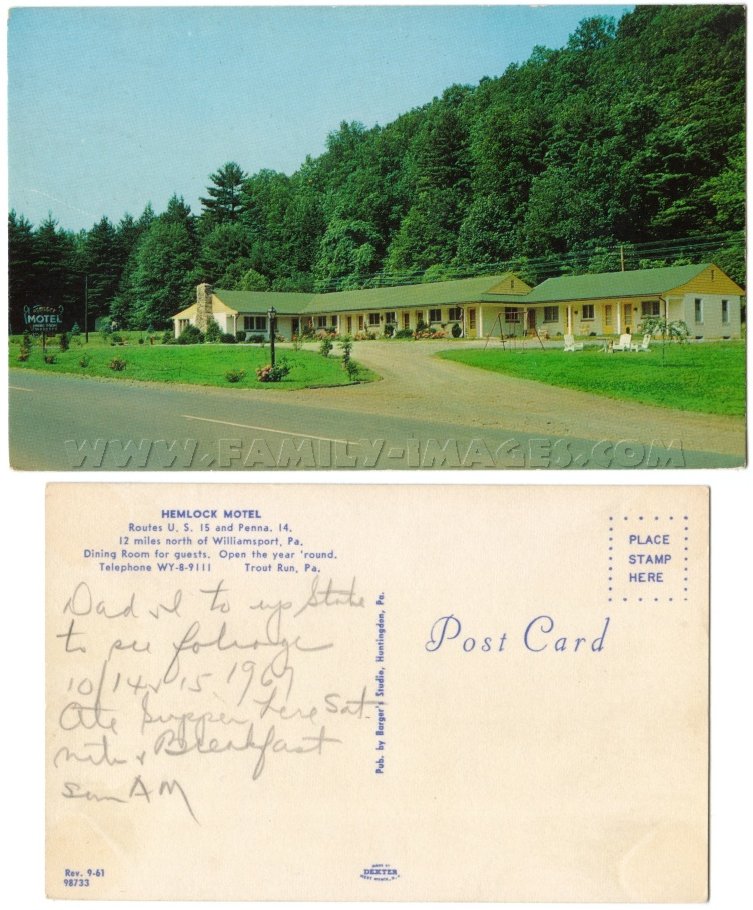 MOTEL
WWW.FAMILY-IMAGES.COM
HEMLOCK MOTEL
Routes U. S. 15 and Penna. 14.
12 miles north of Williamsport, Pa.
Dining Room for guests. Open the year 'round.
Telephone WY-8-9111 Trout Run, Pa.
PLACE
STAMP
HERE
Post Card
Dad & I to up State
to see foliage
10/14 & 15 1967
Ate Supper here Sat
nite & Breakfast
sun AM
Pub. by Barger's Studio, Huntingdon, Pa.
Rev. 9-61
98733
MADE BY
DEXTER